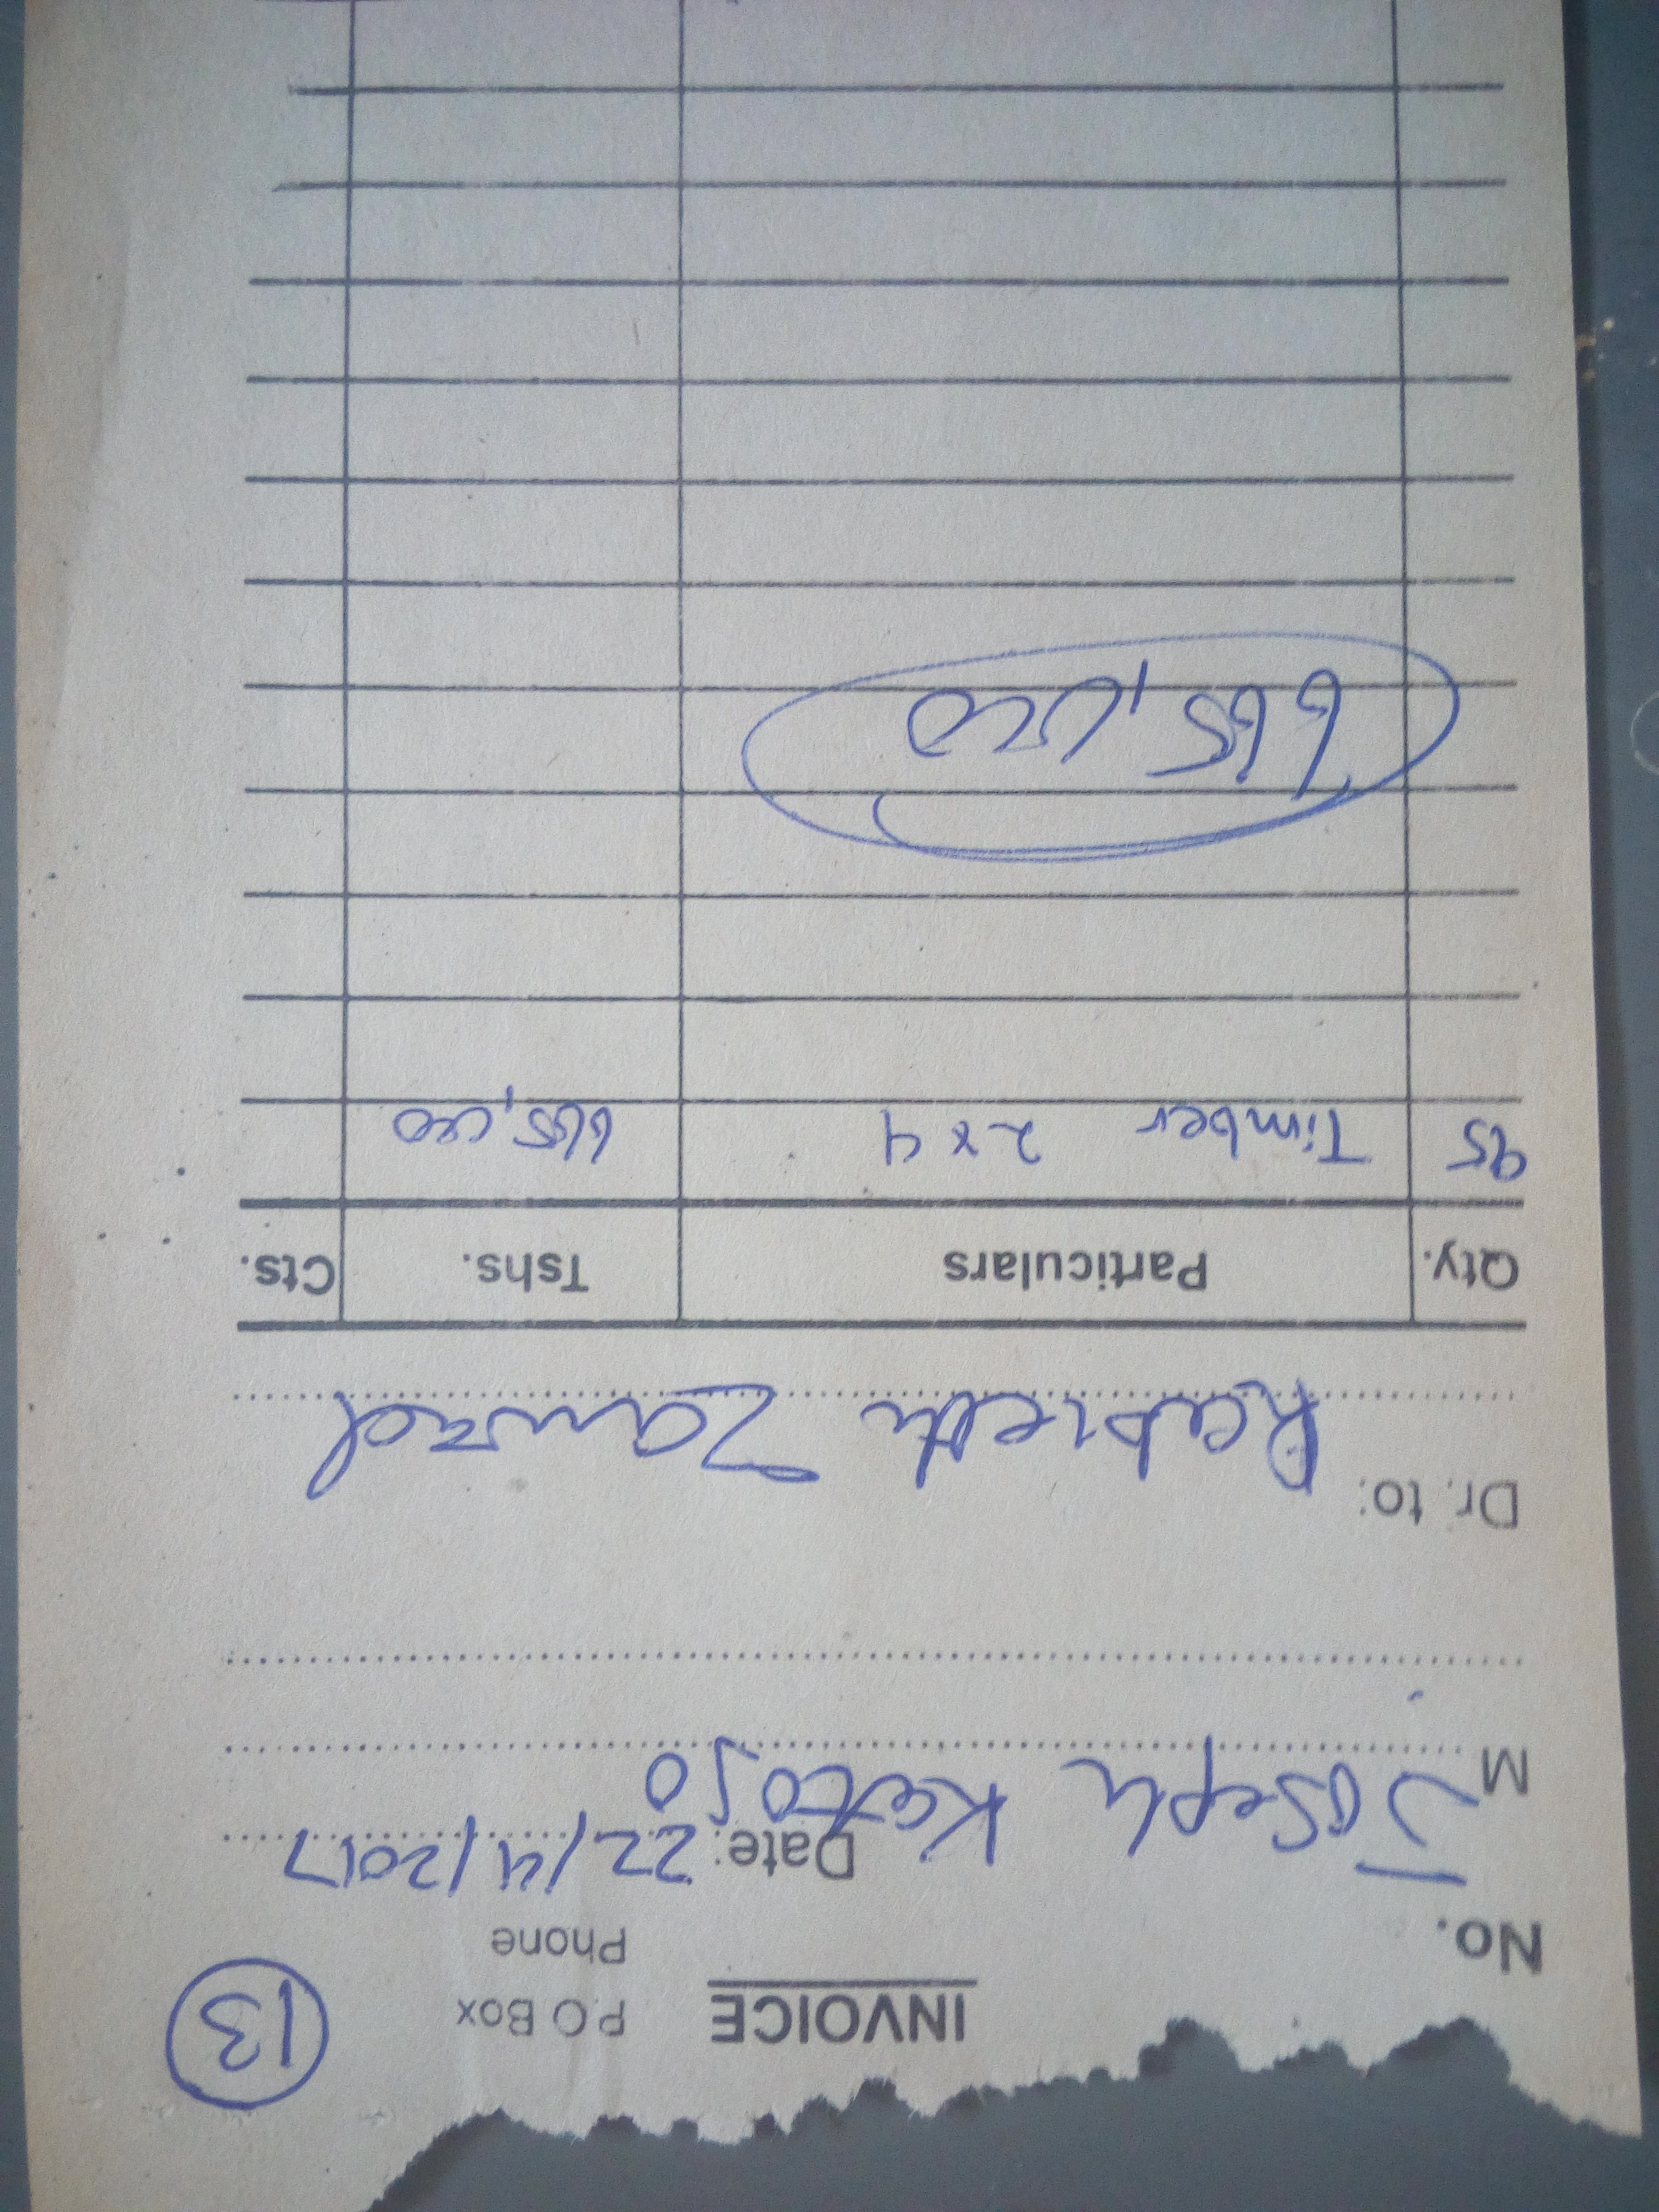 INVOICE
P.O Box
13
Phone
No.
Date: 22/4/2017
M Joseph Katoso
Dr. to:
Zawad
Qty. Particulars Tshs. Cts.
95 Timber 2x4 665,000
665,000